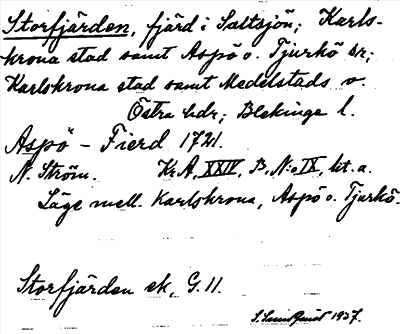 Storfjärden, fjärd i Saltsjön; Karls-
krona stad samt Aspö o. Tjurkö sr;
Karlskrona stad samt Medelstads o.
Östra hdr; Blekinge l.
Aspö - Fierd 1721.
N. Ström. Kr A, XXIV, B, N:o IX, lit. a.
Läge mell. Karlskrona, Aspö o. Tjurkö.
Storfjärden ek, G. 11.
1937.